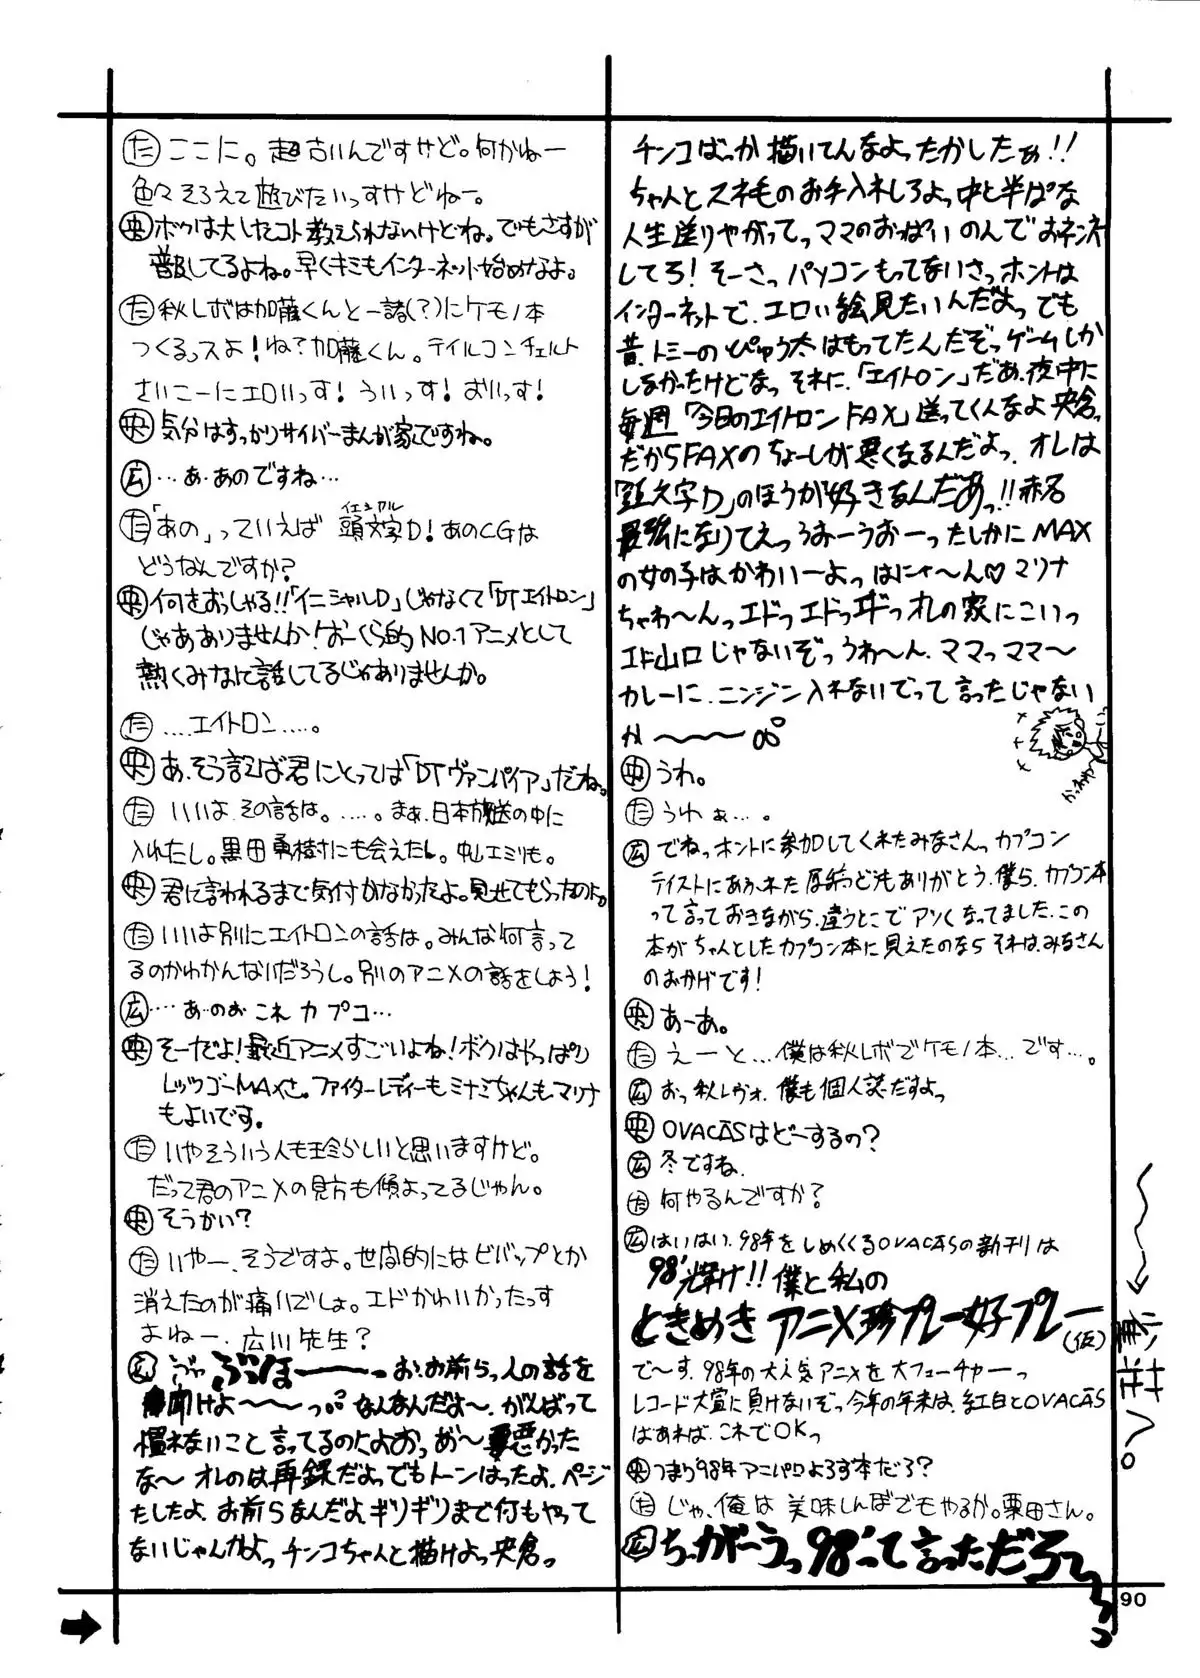 (た)ここに。超古いんですけど。何かねー
色々そろえて遊びたいっすけどねー。
(央)ボクは大したコト教えられないけどね。でもさすが
普及してるよね。早くキミもインターネット始めなよ。
(た)秋レボは加藤くんと一諸(?)にケモノ本
つくるっスよ!ね?加藤くん。テイルコンチェルト
さいこーにエロいっす!ういっす!おいっす!
(央)気分はすっかりサイバーまんが家ですね。
(広)…あ・あのですね…
(た)「あの」っていえば 頭文字D!あのCGは
イニシャル
どうなんですか?
(央)何をおっしゃる!!「イニシャルD」じゃなくて「DTエイトロン」
じゃあありませんか!おーくら的NO.1アニメとして
熱くみなに話してるじゃありませんか。
(た)....エイトロン.....。
(央)あ、そう言えば君にとっては「DTヴァンパイア」だね。
(た)いいよ、その話は。.....。まぁ、日本放送の中に
入れたし。黒田勇樹にも会えたし。中山エミリも。
(央)君に言われるまで気付かなかったよ。見せてもらったのに。
(た)いいよ別にエイトロンの話は。みんな何言って
るのかわかんないだろうし。別のアニメの話をしよう!
(広)…あ…のぉ これ カプコ…
(央)そーだよ!最近アニメすごいよね!ボクはやっぱり
レッツゴーMAXさ。ファイターレディーもミナミちゃんもマリナ
もよいです。
(た)いやそういう人も珍らしいと思いますけど。
だって君のアニメの見方も傾よってるじゃん。
(央)そうかい?
(た)いやー、そうですよ。世間的にはビバップとか
消えたのが痛いでしょ。エドかわいかったっす
よねー、広川先生?
(広)ぶほーーーっお、お前ら、人の話を
聞けよ〜〜〜っ。なんなんだよ〜、がんばって
慣れないこと言ってるのによおっ、あ〜悪かった
な〜 オレのは再録だよっでもトーンはったよ、ページ
たしたよ、お前らなんだよ、ギリギリまで何もやって
ないじゃんかよっ チンコちゃんと描けよっ央倉。
チンコばっか描いてんなよったかしたぁ!!
ちゃんとスネ毛のお手入れしろよっ中と半ぱな
人生送りやがってっママのおっぱいのんでおネンネ
してろ!そーさっパソコンもってないさっホントは
インターネットで、エロい絵見たいんだよっでも
昔、トミーのぴゅう太はもってたんだぞっゲームしか
しなかったけどなっ それに、「エイトロン」だあ、夜中に
毎週「今日のエイトロンFAX」送ってくんなよ 央倉っ
だからFAXのちょーしが悪くなるんだよっ、オレは
「頭文字D」のほうが好きなんだあっ!!赤名
最強になりてえっ うおーうおーったしかにMAX
の女の子はかわいーよっ はにゃ〜ん♡マリナ
ちゃわ〜んっエドっエドっエドっオレの家にこいっ
エド山口じゃないぞっ うわ〜ん、ママっママ〜
カレーに、ニンジン入れないでって言ったじゃない
か〜〜〜
(央)うわ。
(た)うわぁ…。
(広)でねっホントに参加してくれたみなさんっカプコン
テイストにあふれた原稿っどもありがとう、僕ら、カプコン本
って言っておきながら、違うとこでアツくなってました、この
本がちゃんとしたカプコン本に見えたのなら それは、みなさん
のおかげです!
(央)あーあ。
(た)えーと…僕は秋レボでケモノ本…です…。
(広)おっ秋レヴォ、僕も個人誌だすよっ
(央)OVACASはどーするの?
(広)冬ですね
(た)何やるんですか?
(広)はいはい、98年をしめくくるOVACASの新刊は
98'輝け!!僕と私の
ときめきアニメ珍プレー好プレー(仮)
で〜す、98年の大人気アニメを大フューチャーっ
レコード大賞に負けないぞっ今年の年末は、紅白とOVACAS
はあれば、これでOKっ
(央)つまり'98年アニパロよろず本だろ?
(た)じゃ、俺は美味しんぼでもやるか。栗田さん。
(広)ちーがーうっ98'って言っただろーっ
90